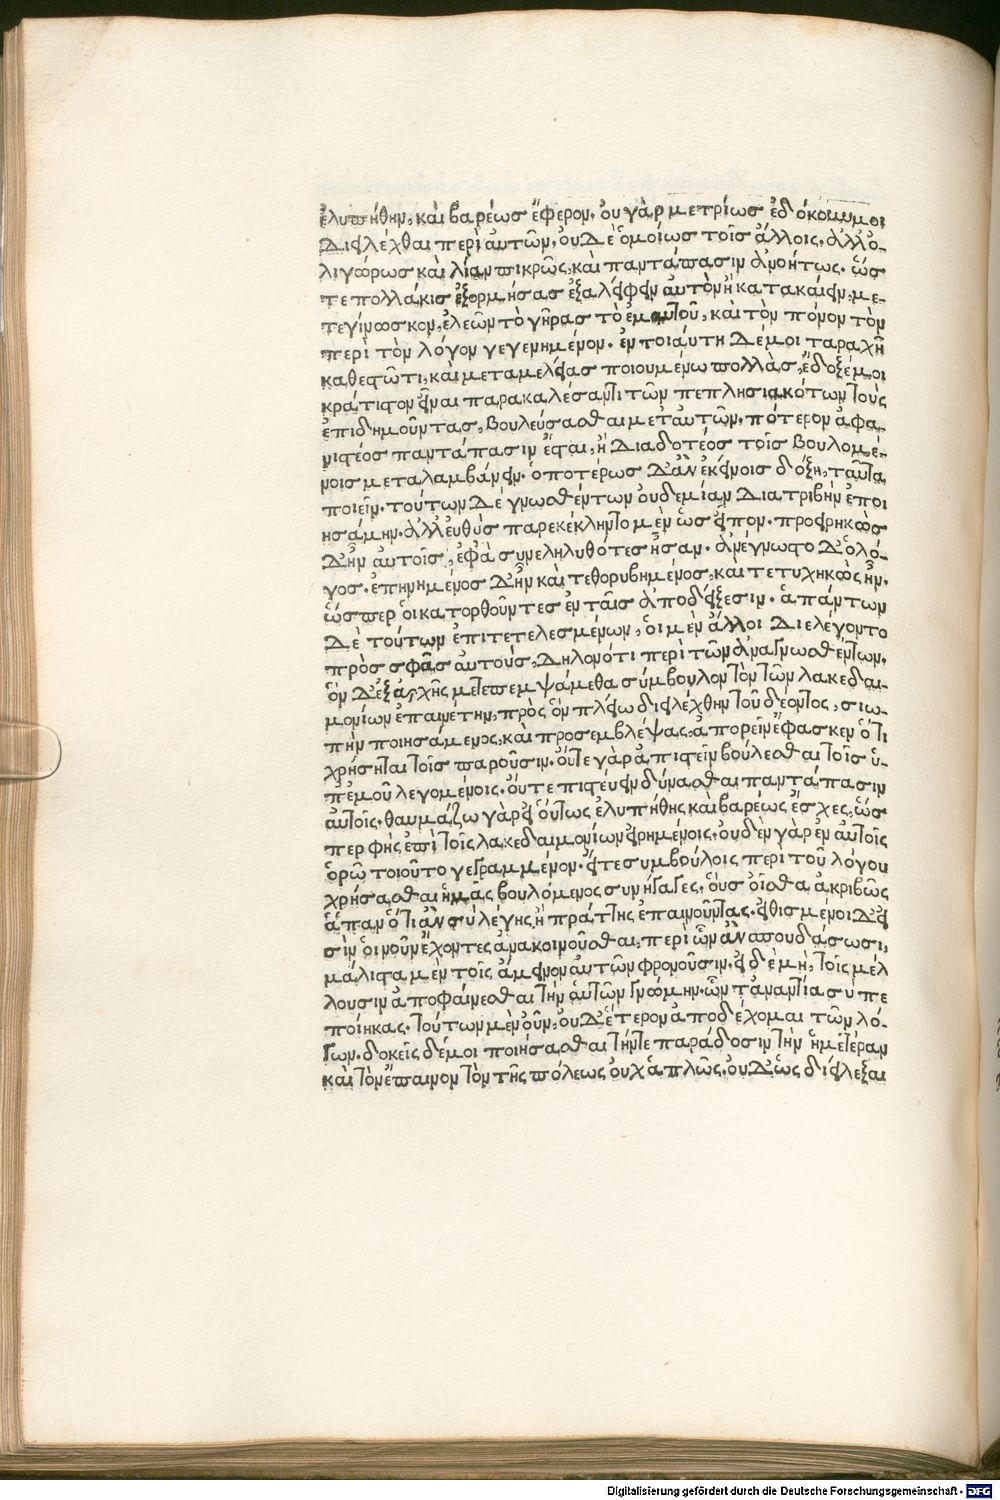 ἐλυπήθην, καὶ βαρέως ἔφερον. οὐ γὰρ μετρίως ἐδόκουν μοι
διειλέχθαι περὶ αὐτῶν, οὐδὲ ὁμοίως τοῖς ἄλλοις, ἀλλ' ὀ-
λιγώρως καὶ λίαν πικρῶς, καὶ παντάπασιν ἀνοήτως. ὥσ
τε πολλάκις ἐξορμήσας ἐξαλείφειν αὐτὸν ἢ κατακαίειν, με-
τεγίνωσκον, ἐλεῶν τὸ γῆρας τὸ ἐμαυτοῦ, καὶ τὸν πόνον τὸν
περὶ τὸν λόγον γεγενημένον. ἐν τοιαύτη δέ μοι ταραχῆ
καθεστῶτι, καὶ μεταμελείας ποιουμένω πολλὰς, ἔδοξέ μοι
κράτιστον εἶναι παρακαλέσαντι τῶν πεπλησιακότων τοὺς
ἐπιδημοῦντας, βουλεύσασθαι μετ' αὐτῶν, πότερον ἀφα-
νιστέος παντάπασιν ἔσται, ἢ διαδοτέος τοῖς βουλομέ-
νοις μεταλαμβάνειν. ὁποτέρως δ' ἂν ἐκείνοις δόξη, ταῦτα
ποιεῖν. τούτων δὲ γνωσθέντων οὐδεμίαν διατριβὴν ἐποι
ησάμην. ἀλλ' εὐθὺς παρεκέκληντο μὲν ὡς εἶπον. προειρηκὼς
δ' ἦν αὐτοῖς, ἐφ' ἃ συνεληλυθότες ἦσαν. ἀνέγνωστο δ' ὁ λό-
γος. ἐπηνημένος δ' ἦν καὶ τεθορυβημένος, καὶ τετυχηκὼς ἦν.
ὥσπερ οἱ κατορθοῦντες ἐν ταῖς ἀποδείξεσιν. ἁπάντων
δὲ τούτων ἐπιτετελεσμένων, οἱ μὲν ἄλλοι διελέγοντο
πρὸς σφᾶς αὐτοὺς, δηλονότι περὶ τῶν ἀναγνωσθέντων.
ὃν δ' ἐξ ἀρχῆς μετεπεμψάμεθα σύμβουλον τὸν τῶν λακεδαι-
μονίων ἐπαινέτην, πρὸς ὃν πλείω διειλέχθην τοῦ δέοντος, σιω-
πὴν ποιησάμενος, καὶ προσεμβλέψας, ἀπορεῖν ἔφασκεν ὅτι
χρήσηται τοῖς παροῦσιν. οὔτε γὰρ ἀπιστεῖν βούλεσθαι τοῖς ὑ-
π' ἐμοῦ λεγομένοις. οὔτε πιστεύειν δύνασθαι παντάπασιν
αὐτοῖς. θαυμάζω γὰρ εἰ οὕτως ἐλυπήθης καὶ βαρέως ἔσχες, ὥσ
περ φὴς ἐπὶ τοῖς λακεδαιμονίων εἰρημένοις. οὐδὲν γὰρ ἐν αὐτοῖς
ὁρῶ τοιοῦτο γεγραμμένον. εἴτε συμβούλοις περὶ τοῦ λόγου
χρήσασθαι ἡμᾶς βουλόμενος συνήγαγες. οὓς οἶσθα ἀκριβῶς
ἅπαν ὅτι ἂν σὺ λέγης ἢ πράττης ἐπαινοῦντας. εἰθισμένοι δ' εἰ
σὶν οἱ νοῦν ἔχοντες ἀνακοινοῦσθαι, περὶ ὧν ἂν σπουδάσωσι,
μάλιστα μὲν τοῖς ἄμεινον αὐτῶν φρονοῦσιν. εἰ δὲ μὴ, τοῖς μέλ
λουσιν ἀποφαίνεσθαι τὴν αὑτῶν γνώμην. ὧν τἀναντία σὺ πε
ποίηκας. τούτων μὲν οὖν, οὐδ' ἕτερον ἀποδέχομαι τῶν λό-
γων. δοκεῖς δέ μοι ποιήσασθαι τήν τε παράδοσιν τὴν ἡμετέραν
καὶ τὸν ἔπαινον τὸν τῆς πόλεως οὐχ ἁπλῶς, οὐδ' ὡς διείλεξαι
Digitalisierung gefördert durch die Deutsche Forschungsgemeinschaft - DFG